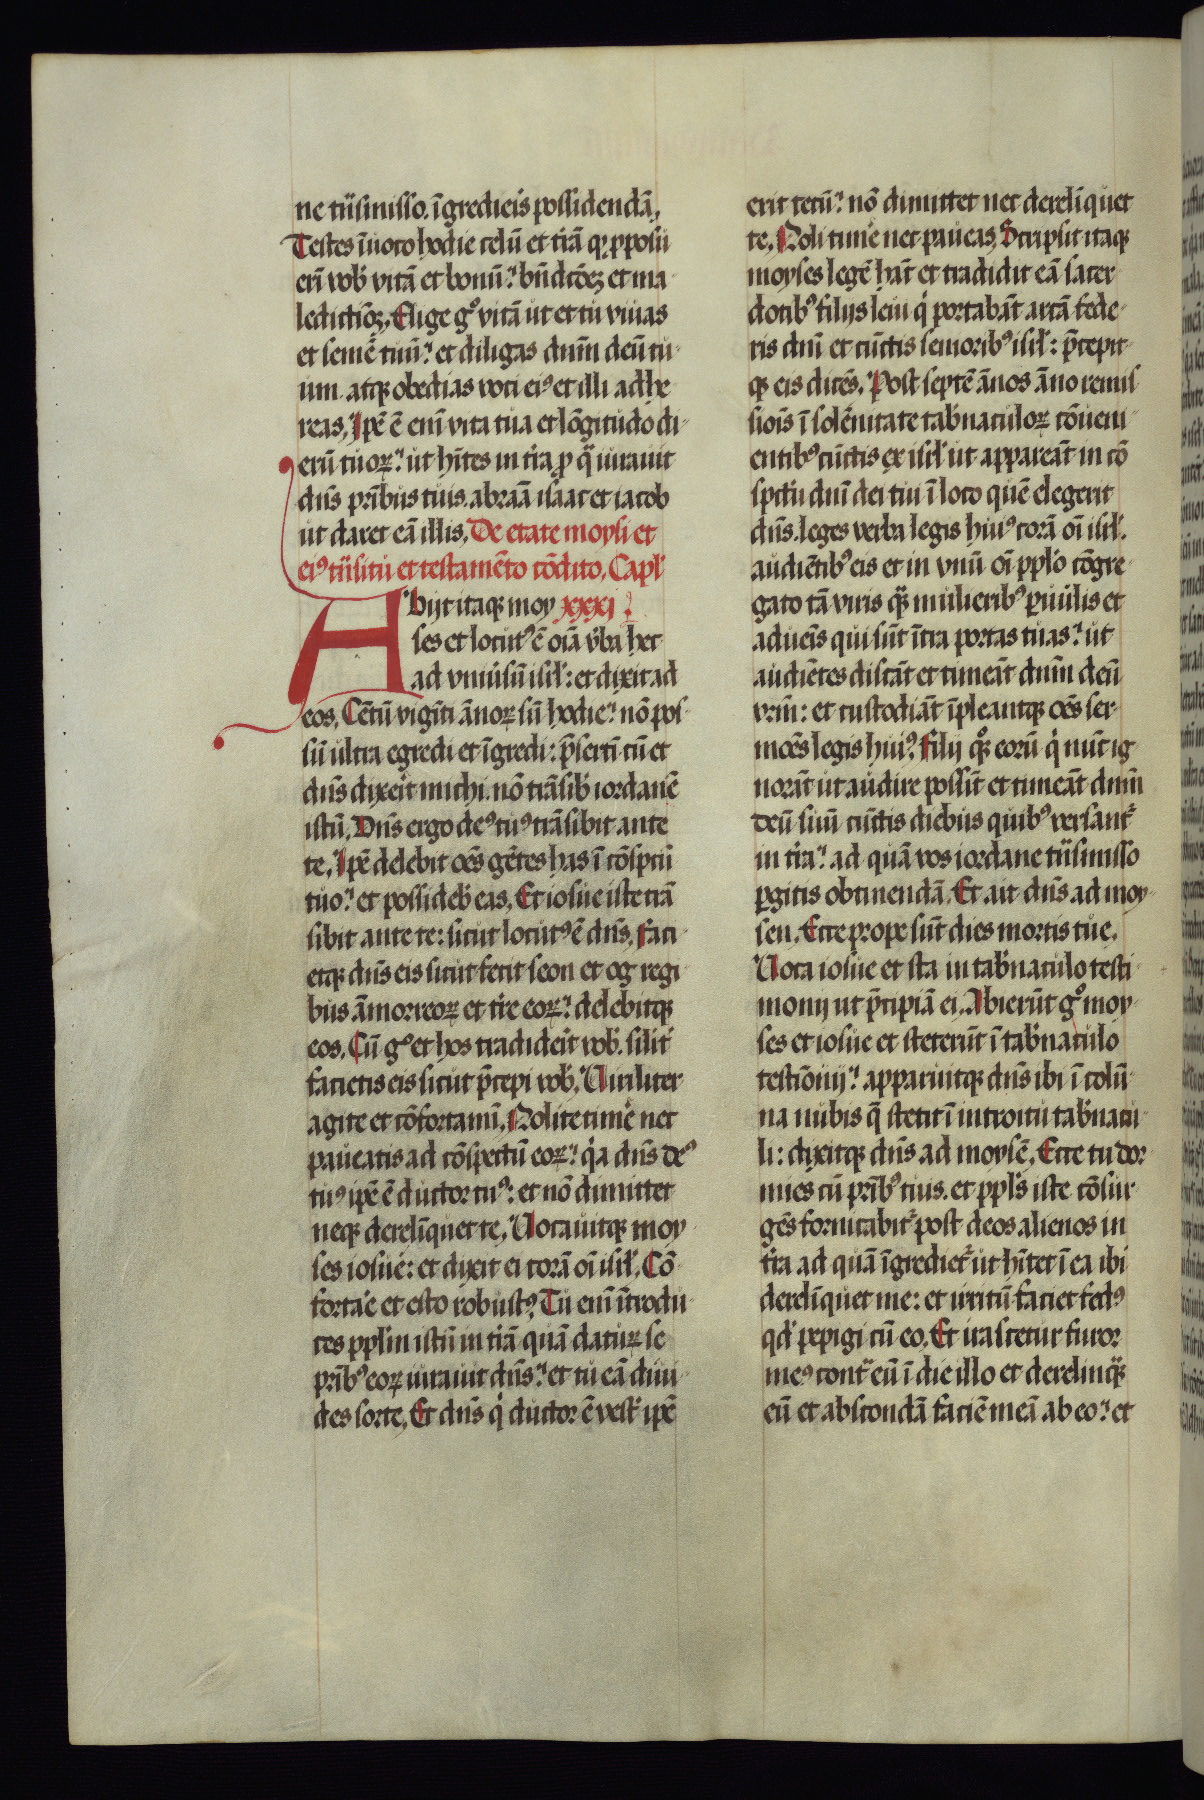 ne trͣsmisso. īgredieis possidendā.
Testes īuoco hodie celū et trā qꝫ pposu
erī vob vitā et bonū: bn̄dctōēꝫ et ma
ledictiōꝫ. Elige gͦ vitā ut et tu viuas
et semē tuū: et diligas dnm̄ deū tu
um. atqꝫ obedias voci eiꝰ et illi adhe
reas. Ipē ē enī vita tua et lōgitudo di
erū tuoꝝ: ut hītes in tra ꝓ qͣ iurauit
dn̄s prībus tuis. abraā isaac et iacob
ut daret eā illis. De etate moysi et
eiꝰ trͣsitu et testamēto cōdito. Capl
Abijt itaqꝫ moy xxxi
ses et locutꝰ ē oīa v̄ba hec
ad vniūsū isrl: et dixit ad
eos. Cētū vigīti ānoꝝ sū hodie: nō pos
sū ultra egredi et īgredi: p̄sertī cū et
dn̄s dixeit michi. nō trāsib iordanē
istū. Dn̄s ergo deꝰ tuꝰ trāsibit ante
te. Ipē delebit oēs gētes has ī cōspctū
tuo: et possideb eas. Et iosue iste trā
sibit ante te: sicut locutꝰ ē dn̄s. faci
etqꝫ dn̄s eis sicut fecit seon et og regi
bus āmorreoꝝ et tre eoꝝ: delebitqꝫ
eos. Cū gͦ et hos tradideit vob. silit
facietis eis sicut p̄cepi vob. Uiriliter
agite et cōfortamī. Nolite timē nec
paueatis ad cōspectū eoꝝ: qͥa dn̄s deꝰ
tuꝰ ipē ē ductor tuꝰ: et nō dimittet
neqꝫ derelīquet te. Uocauitqꝫ moy
ses iosue: et dixit ei corā oī isrl. Cō
fortāe et esto robustꝰ. Tu enī ītrodu
ces pplm istū in trā quā daturꝝ se
prībꝰ eoꝝ iurauit dn̄s: et tu eā diui
des sorte. Et dn̄s qͥ ductor ē vest ipē
erit tecū: nō dimittet nec derelīquet
te. Noli timē nec paueas. Scripsit itaqꝫ
moyses legē hāc et tradidit eā sacer
dotibꝰ filijs leui qͥ portabāt arcā fede
ris dn̄i et cūctis seniorībꝰ isrl: p̄cepit
qꝫ eis dicēs. Post septē ānos āno remis
siois ī solēnitate tab̄naculoꝝ cōueni
entibꝰ cūctis ex isrl ut appareāt in cō
spctu dn̄i dei tui ī loco quē elegerit
dn̄s. leges verba legis huiꝰ corā oī isrl.
audiētibꝰ eis et in vnū oī pplo cōgre
gato tā viris qͣꝫ mulieribꝰ puulis et
adueis qui sūt ītra portas tuas: ut
audiētes discāt et timeāt dnm̄ deū
vrm̄: et custodiāt īpleantqꝫ oēs ser
mōes legis huiꝰ. Filij qͦꝫ eorū qͥ nūc ig
norāt ut audire possīt et timeāt dnm̄
deū suū cūctis diebus quibꝰ versantᷣ
in tra: ad quā vos iordane trͣsmisso
pgitis obtinendā. Et ait dn̄s ad moy
sen. Ecce prope sūt dies mortis tue.
Uoca iosue et sta in tab̄naculo testi
monij ut p̄cipiā ei. Abierūt gͦ moy
ses et iosue et steterūt ī tab̄naculo
testiōnij: apparuitqꝫ dn̄s ibi ī colū
na nubis q̄ stetit ī introitu tab̄nacu
li: dixitqꝫ dn̄s ad moysē. Ecce tu dor
mies cū prībꝰ tuis. et ppls iste cōsur
gēs fornicabitᷣ post deos alienos in
tra ad quā īgredietᷣ ut hītet ī ea ibi
derelīquet me: et irritū faciet fedꝰ
qd pepigi cū eo. Et irascetur furor
meꝰ contᷓ eū ī die illo et derelinqͣꝫ
eū et abscondā faciē meā ab eo: et